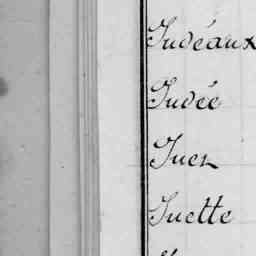 Judéaux
Judée
Juer
Juette